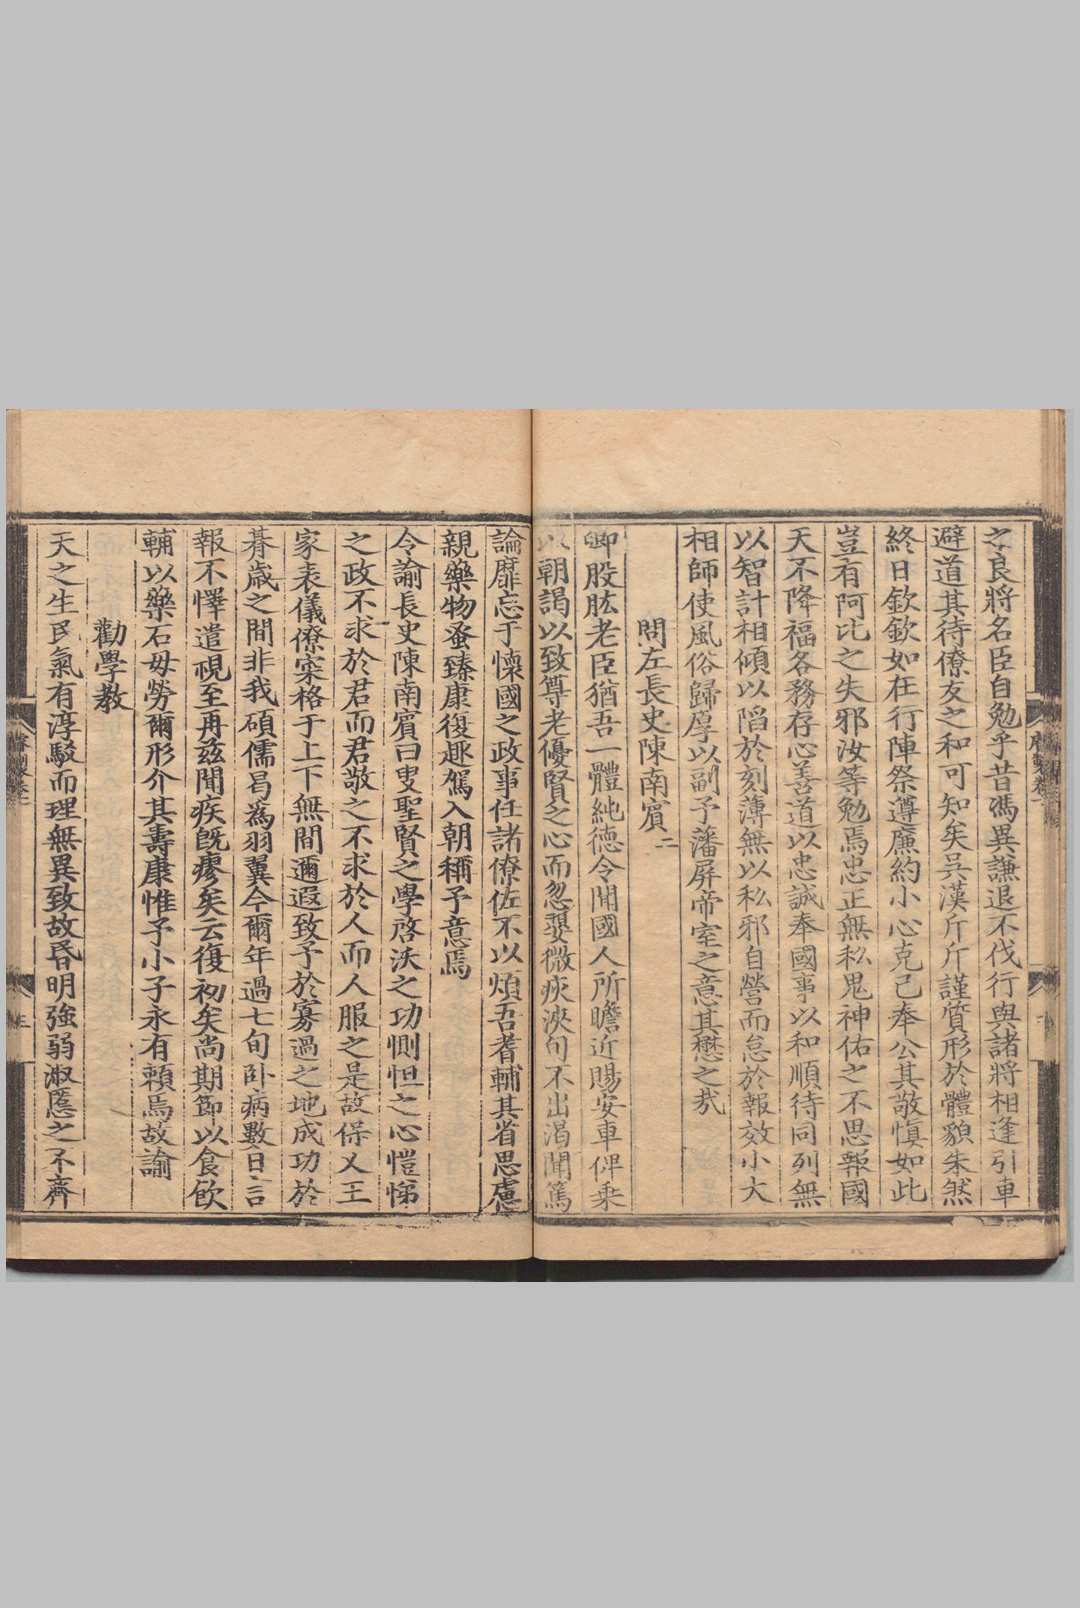 之良將名臣自勉乎昔馮異謙退不伐行與諸將相逢引車
避道其待僚友之和可知矣吳漢斤斤謹質形於體貌朱然
終日欽欽如在行陣祭遵廉約小心克己奉公其敬慎如此
豈有阿比之失邪汝等勉焉忠正無私鬼神佑之不思報國
天不降福各務存心善道以忠誠奉國事以和順待同列無
以智計相傾以陷於刻薄無以私邪自營而怠於報效小大
相師使風俗歸厚以副予藩屏帝室之意其懋之哉
問左長史陳南賓二
卿股肱老臣猶吾一體純德令聞國人所瞻近賜安車俾乘
以朝謁以致尊老優賢之心而忽嬰微疾浹旬不出渴聞篤
論靡忘于懷國之政事任諸僚佐不以煩吾耆輔其省思慮
親藥物蚤臻康復趣駕入朝稱予意焉
令諭長史陳南賓曰叟聖賢之學啓沃之功惻怛之心愷悌
之政不求於君而君敬之不求於人而人服之是故保乂王
家表儀僚寀格于上下無間邇遐致予於寡過之地成功於
朞歲之間非我碩儒曷爲羽翼今爾年過七旬臥病數日言
報不懌遣視至再茲聞疾旣瘳矣云復初矣尚期節以食飲
輔以藥石毋勞爾形介其壽康惟予小子永有賴焉故諭
勸學教
天之生民氣有淳駁而理無異致故昏明強弱淑慝之不齊
三